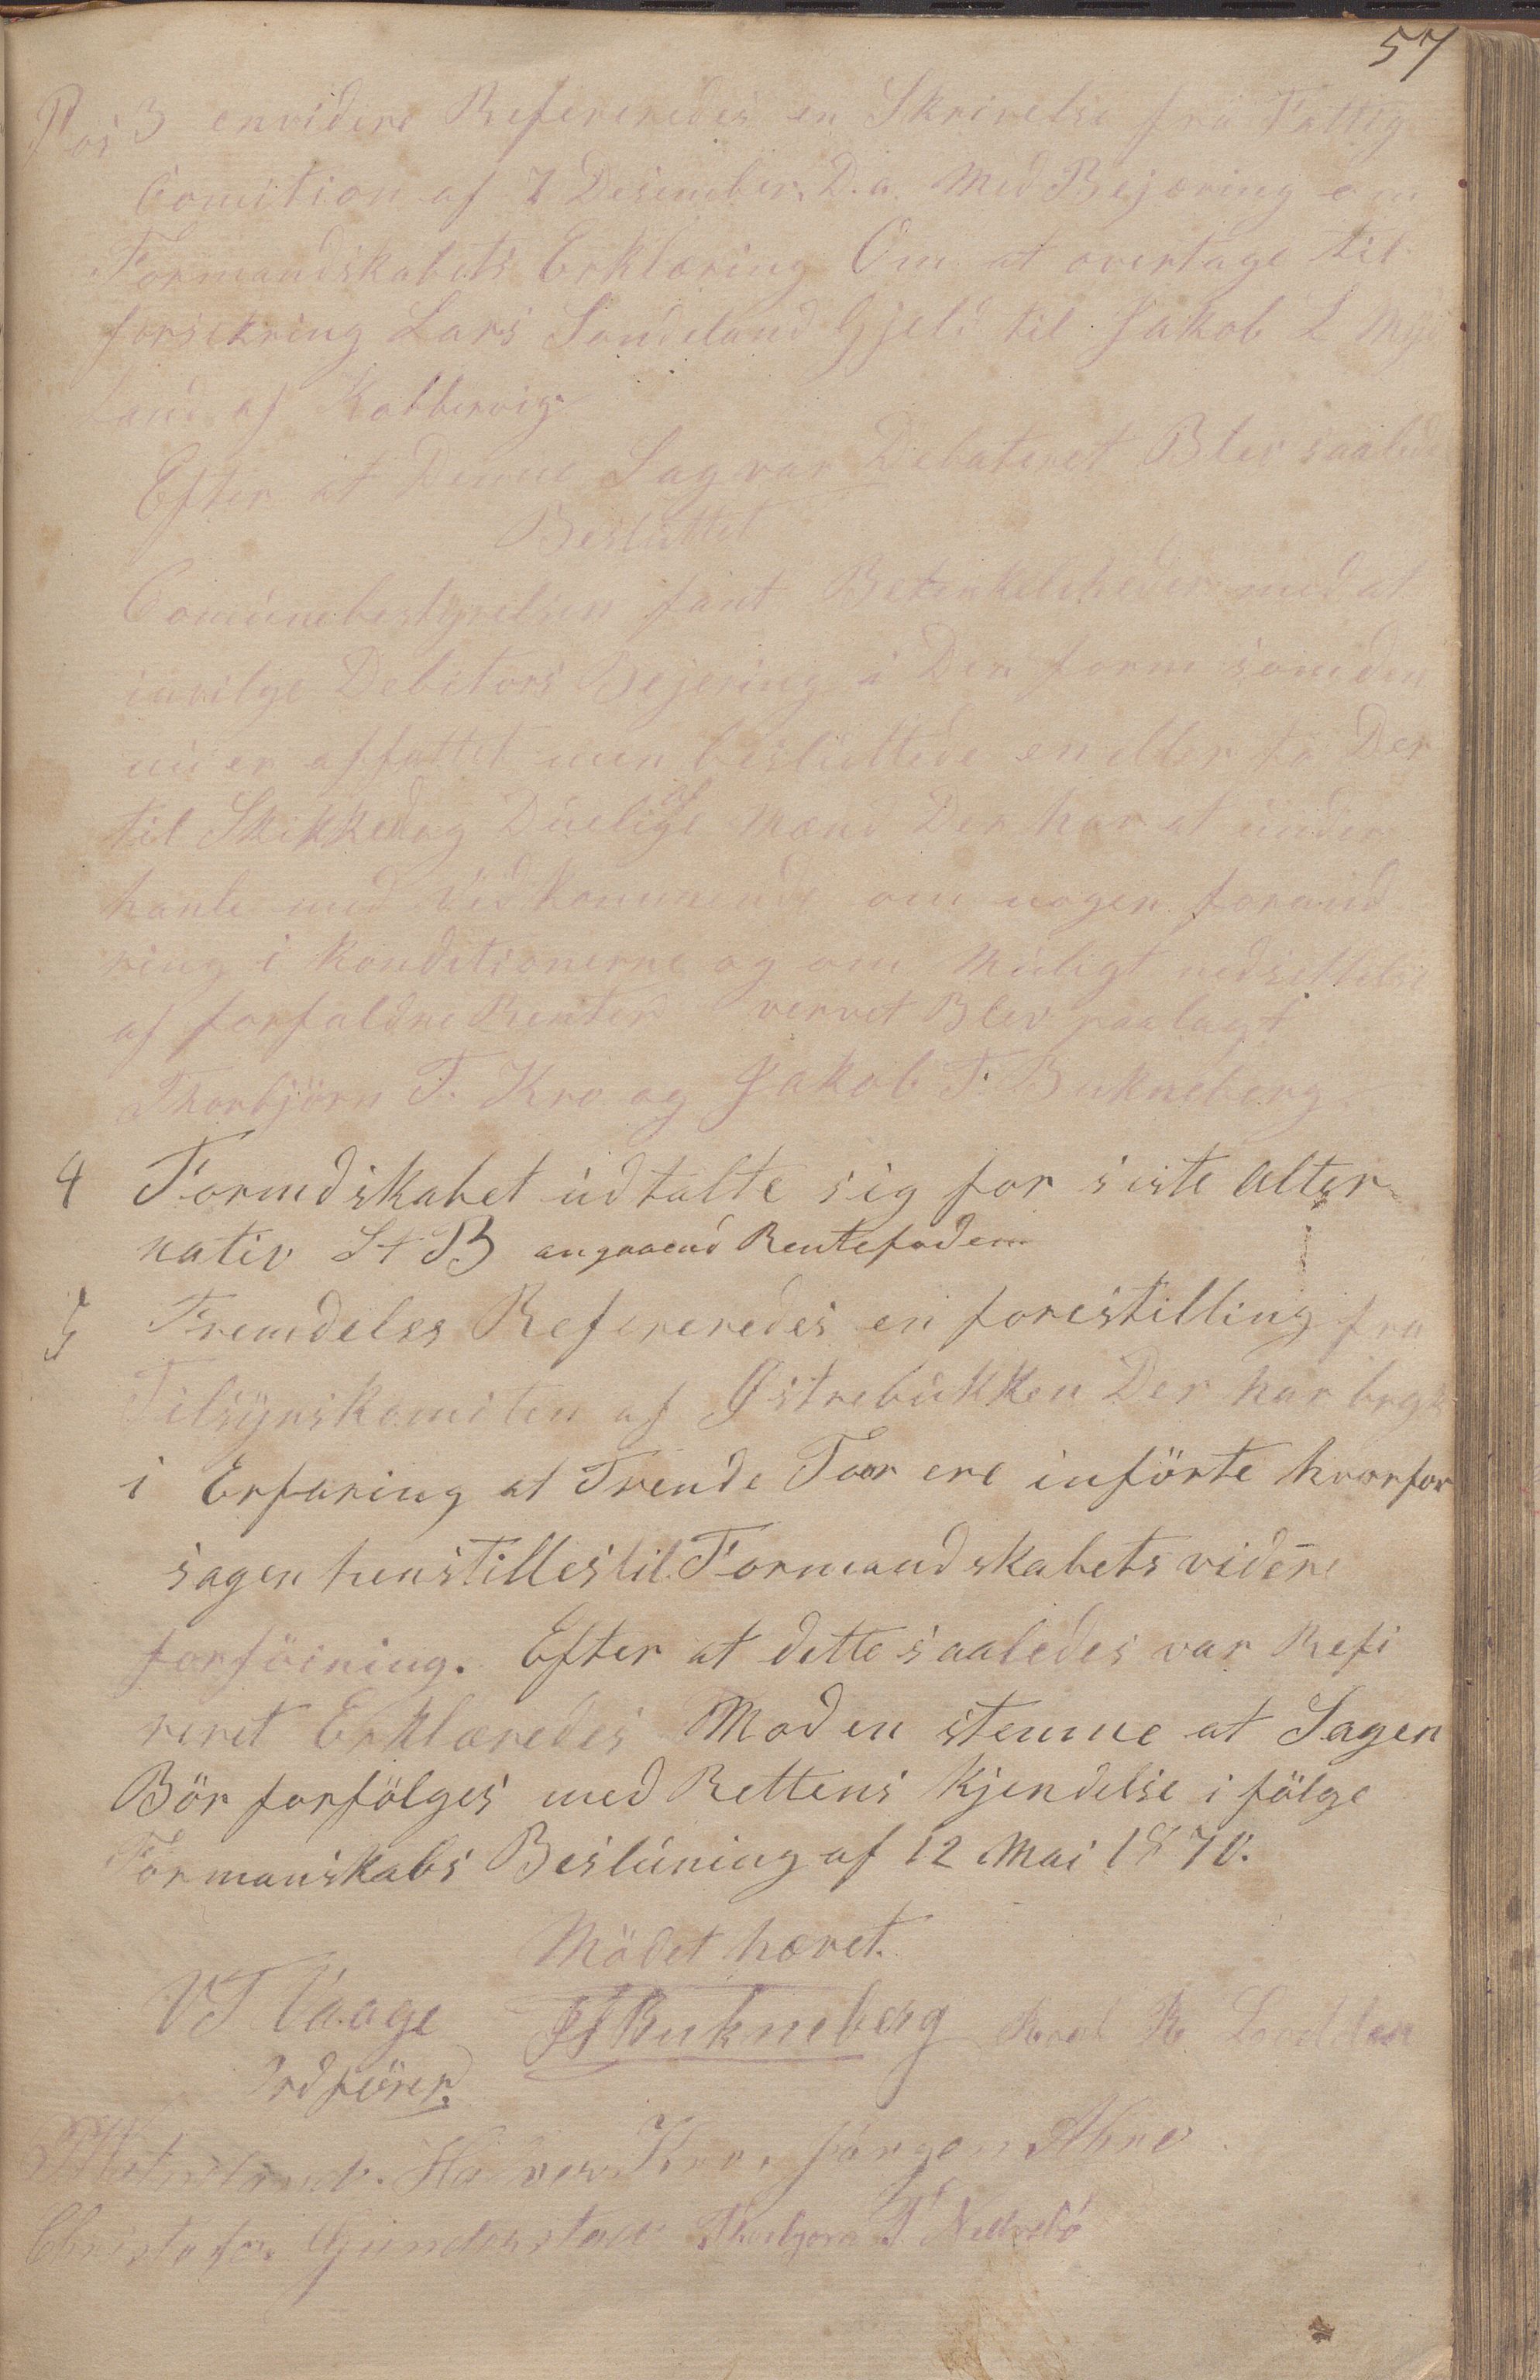 57
Pos 3 envidere Refereredes en Skrivelse fra Fattig
Comition af 7 Desember D.a. Med Bejæring om
Formandskabets Erklæring Om at overtage til
forsikring Lars Sandeland Gjeld til Jakob L Myg
land af Kobbervig
Efter at Denne Sag var Debateret Blev saalede
Besluttet
Comúnebestyrelsen fant Betenkeligheder med at
invilge Debitors Bejering i Den form som den
nú er affattet men beslúttede en eller to Der
til Skikkede og Dúelige af Mænd Der har at únder
hanle med Vedkommende om nogen forand
ring i Konditionerne og om Múligt nedsettelse
af forfaldne Renter vervet Blev paalagt
Thorbjörn T. Kro og Jakob T. Bukneberg
4 Formdskabet údtalte sig for siste alter
nativ St B angaaend Rentefoden
5 Fremdeles Refereredes en forestilling fra
Tilsýnskomiten af Østrebúkken Der har bragt
i Erfaring at Trende Faar ere införte hvorfor
sagen henstilles til Formandskabets videre
forföining. Efter at dette saaledes var Refe
reret Erklæredes Mod en stemme at Sagen
Bör forfölges med Rettens Kjendelse i fölge
Formanskabs Beslúning af 12 Mai 1870.
Mödet hævet.
VT Vaage JT Bukneberg Knud K Lodden
Ordförer
Halvor Kro. Jörgen Åhre
Christofer Gunderstad Thorbjorn T Nedrebö